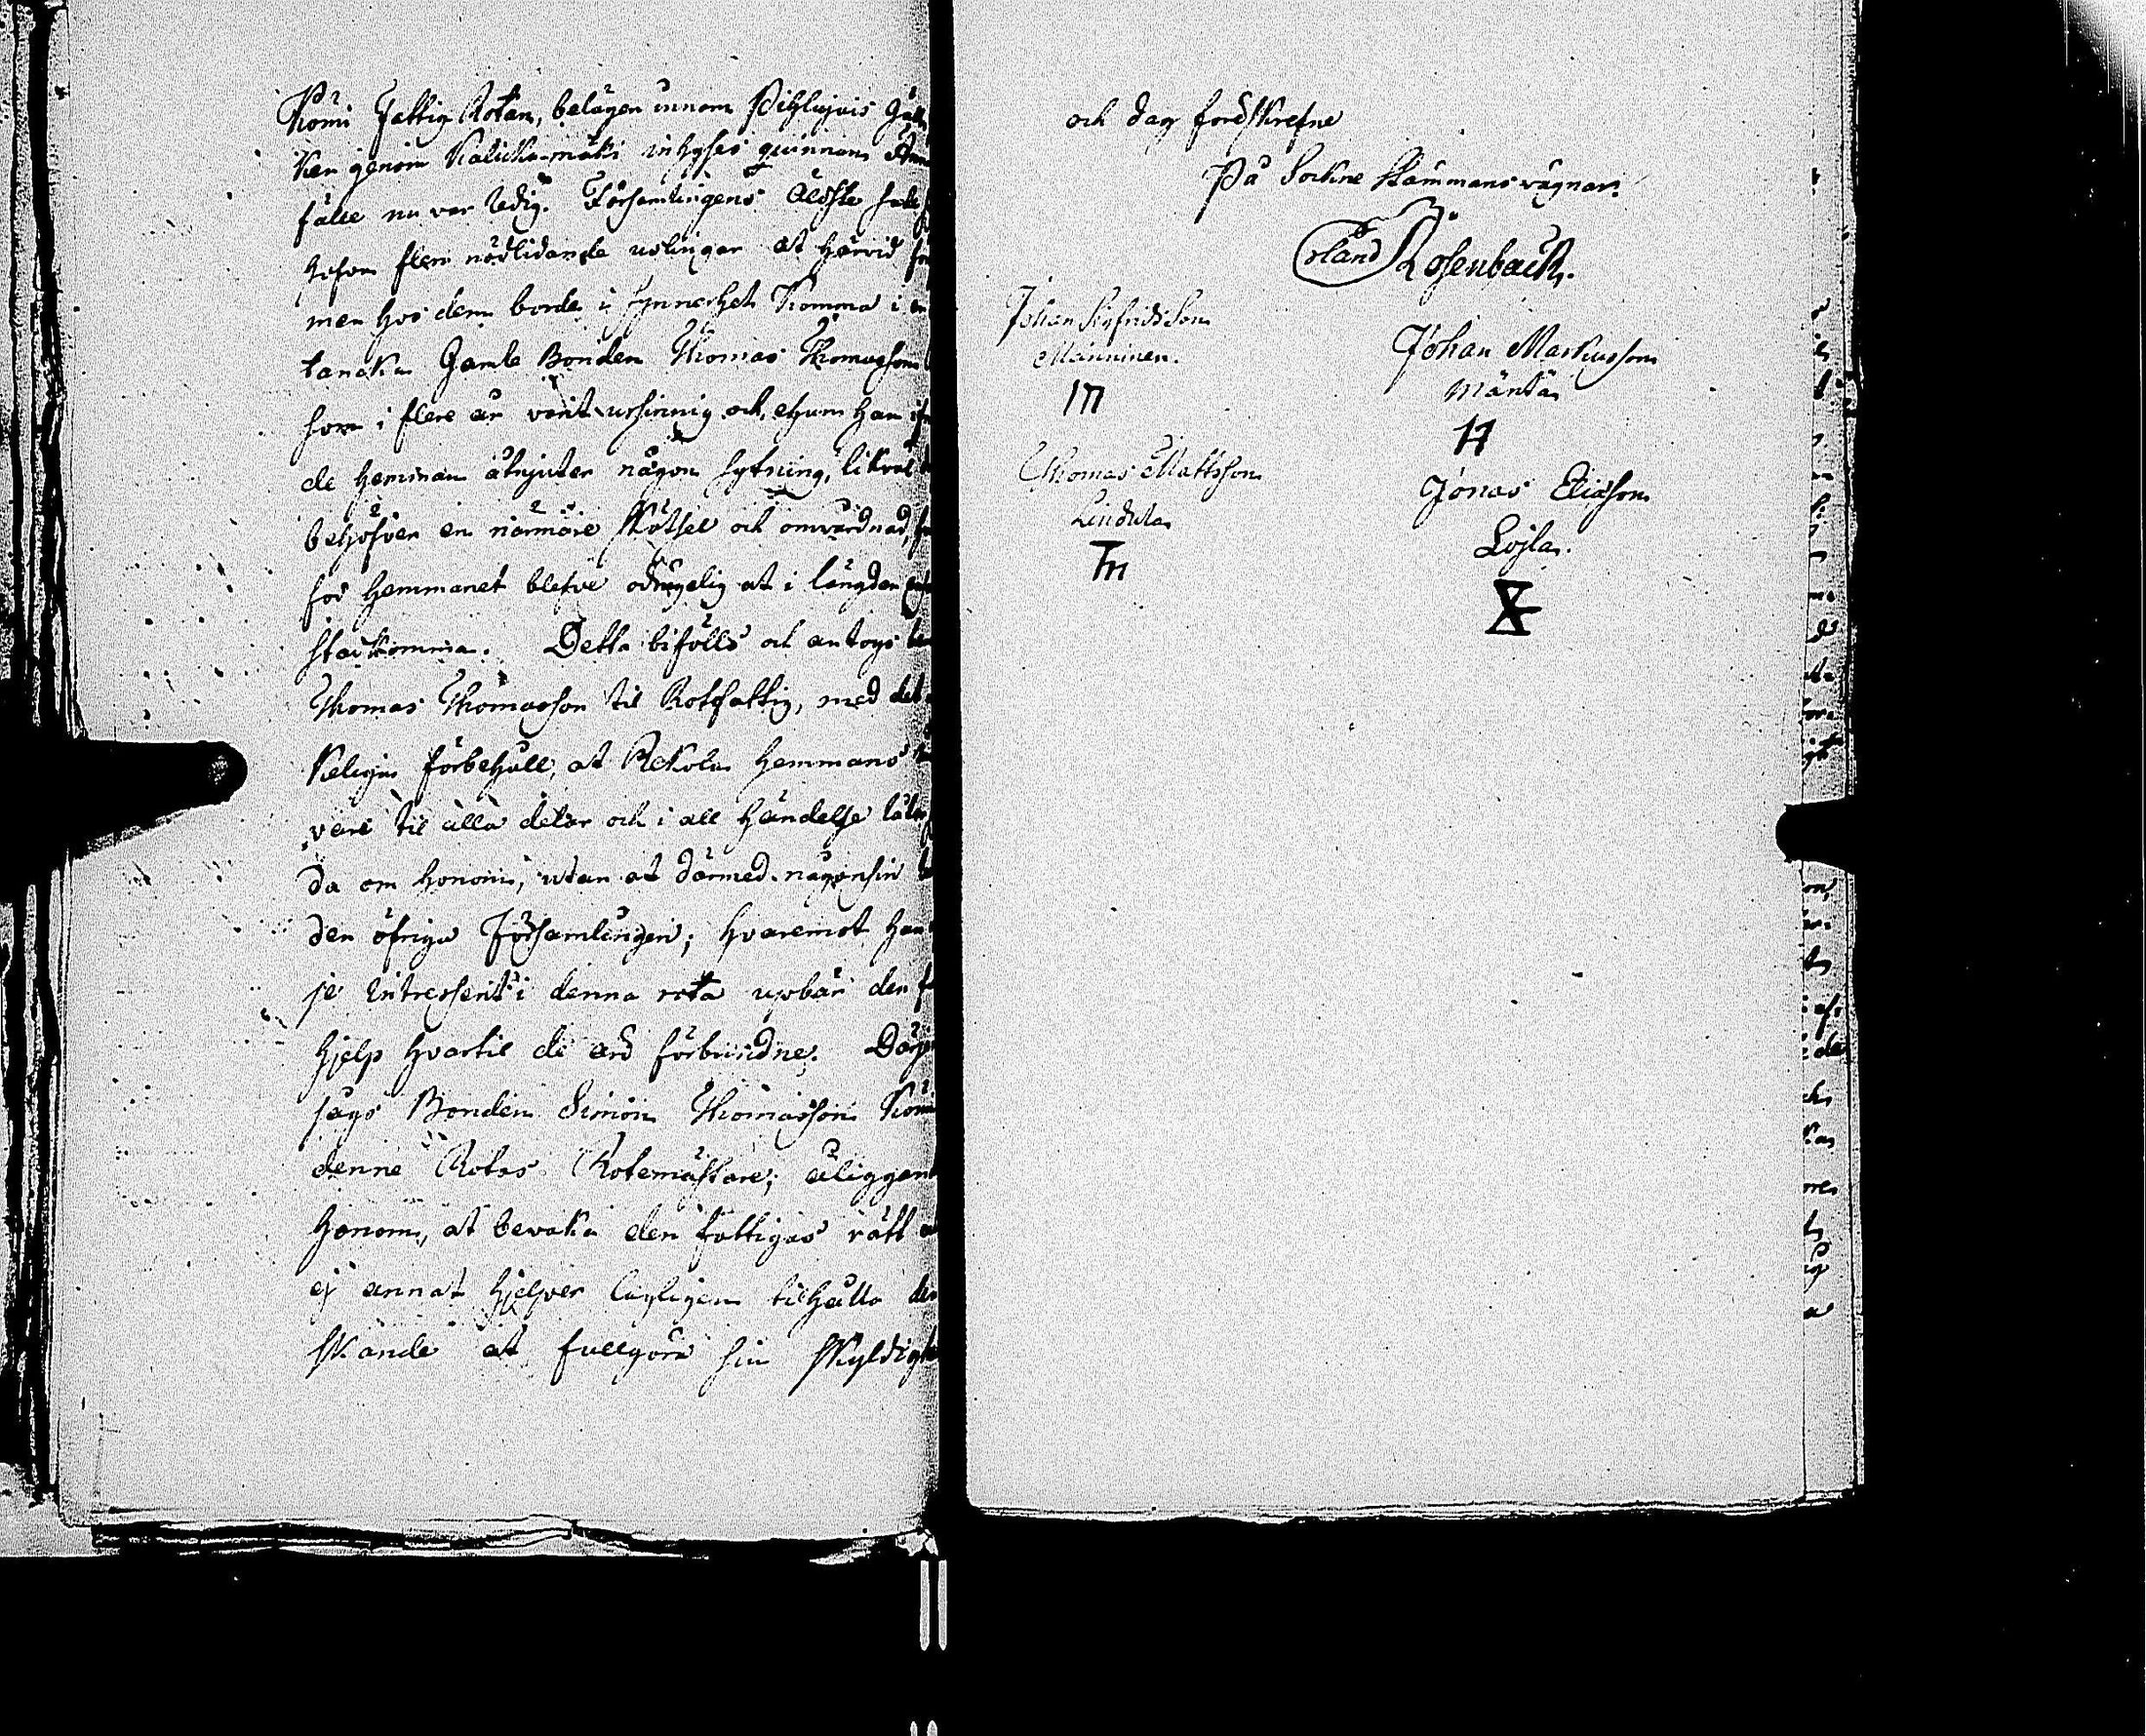 Kömi Fattig Rotan, belägen innom Pihlajais
ken genom Kalicka-mäki inhyses quinnans
fälle nu var ledig. Församlingens Äldste
hofva flere nödlidande uslingar at härvid
men hos dem borde i synnerhet komma i
tanka Gamle Bonden Thomas Thomasson
som i flere år varit ursinnig och, ehuru han
de hemman åtnjuter någon sytning, likväl
behöfver en närmare skötsel och omvårdnad,
för Hemmanet blefve odrägelig at i längden
stadkomma. Detta bifölls och antogs
Thomas Thomasson til Rotefattig, med det
keliga förbehåll, at Rekola Hemmans
vare til alla delar och i all händelse
da om honom, utan at därmed någonsin
den öfriga Församlingen; hvaremot han
je Intressent i denna rota upbär den
hjelp hvartil de äro förbundne.
sågs Bonden Simon Thomasson
denne Rotas Rotemästare; åliggen
honom, at bevaka den fattigas rätt
ej annat hjelper lagligen tilhålla
skande at fullgöra sin skyldig
och dag förr skrefne
På Sockne Stämmans vägnar
Erland Rosenback.
Johan Sigfridsson
Manninen.
Johan Markusson
Mäntä
Thomas Mattsson
Lindula
Jonas Eliasson
Lojla.